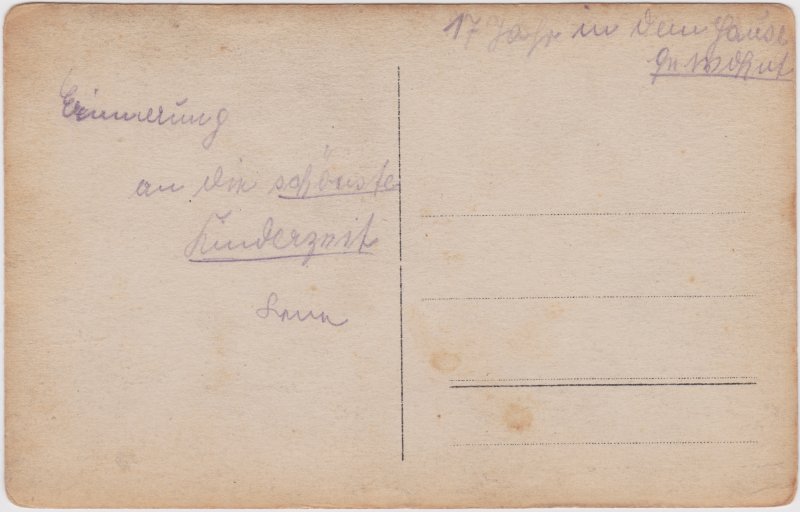 17 Jahr in dem Hause
gewohnt
Erinnerung
an die schönste
Kinderzeit